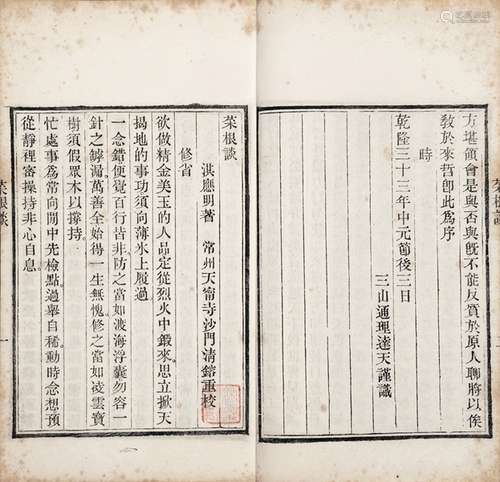 方堪領會是與否與旣不能反質於原人聊將以俟
敎於來哲卽此爲序
時
乾隆三十三年中元節後三日
三山通理達天謹識
菜根談
菜根談
洪應明著　常州天甯寺沙門清鎔重校
修省
欲做精金美玉的人品定從烈火中鍛來思立掀天
揭地的事功須向薄氷上履過
一念錯便覺百行皆非防之當如渡海浮囊勿容一
針之罅漏萬善全始得一生無愧修之當如凌雲寶
樹須假眾木以撐持
忙處事爲常向閒中先檢點過舉自稀動時念想預
從靜裡密操持非心自息
菜根談
一